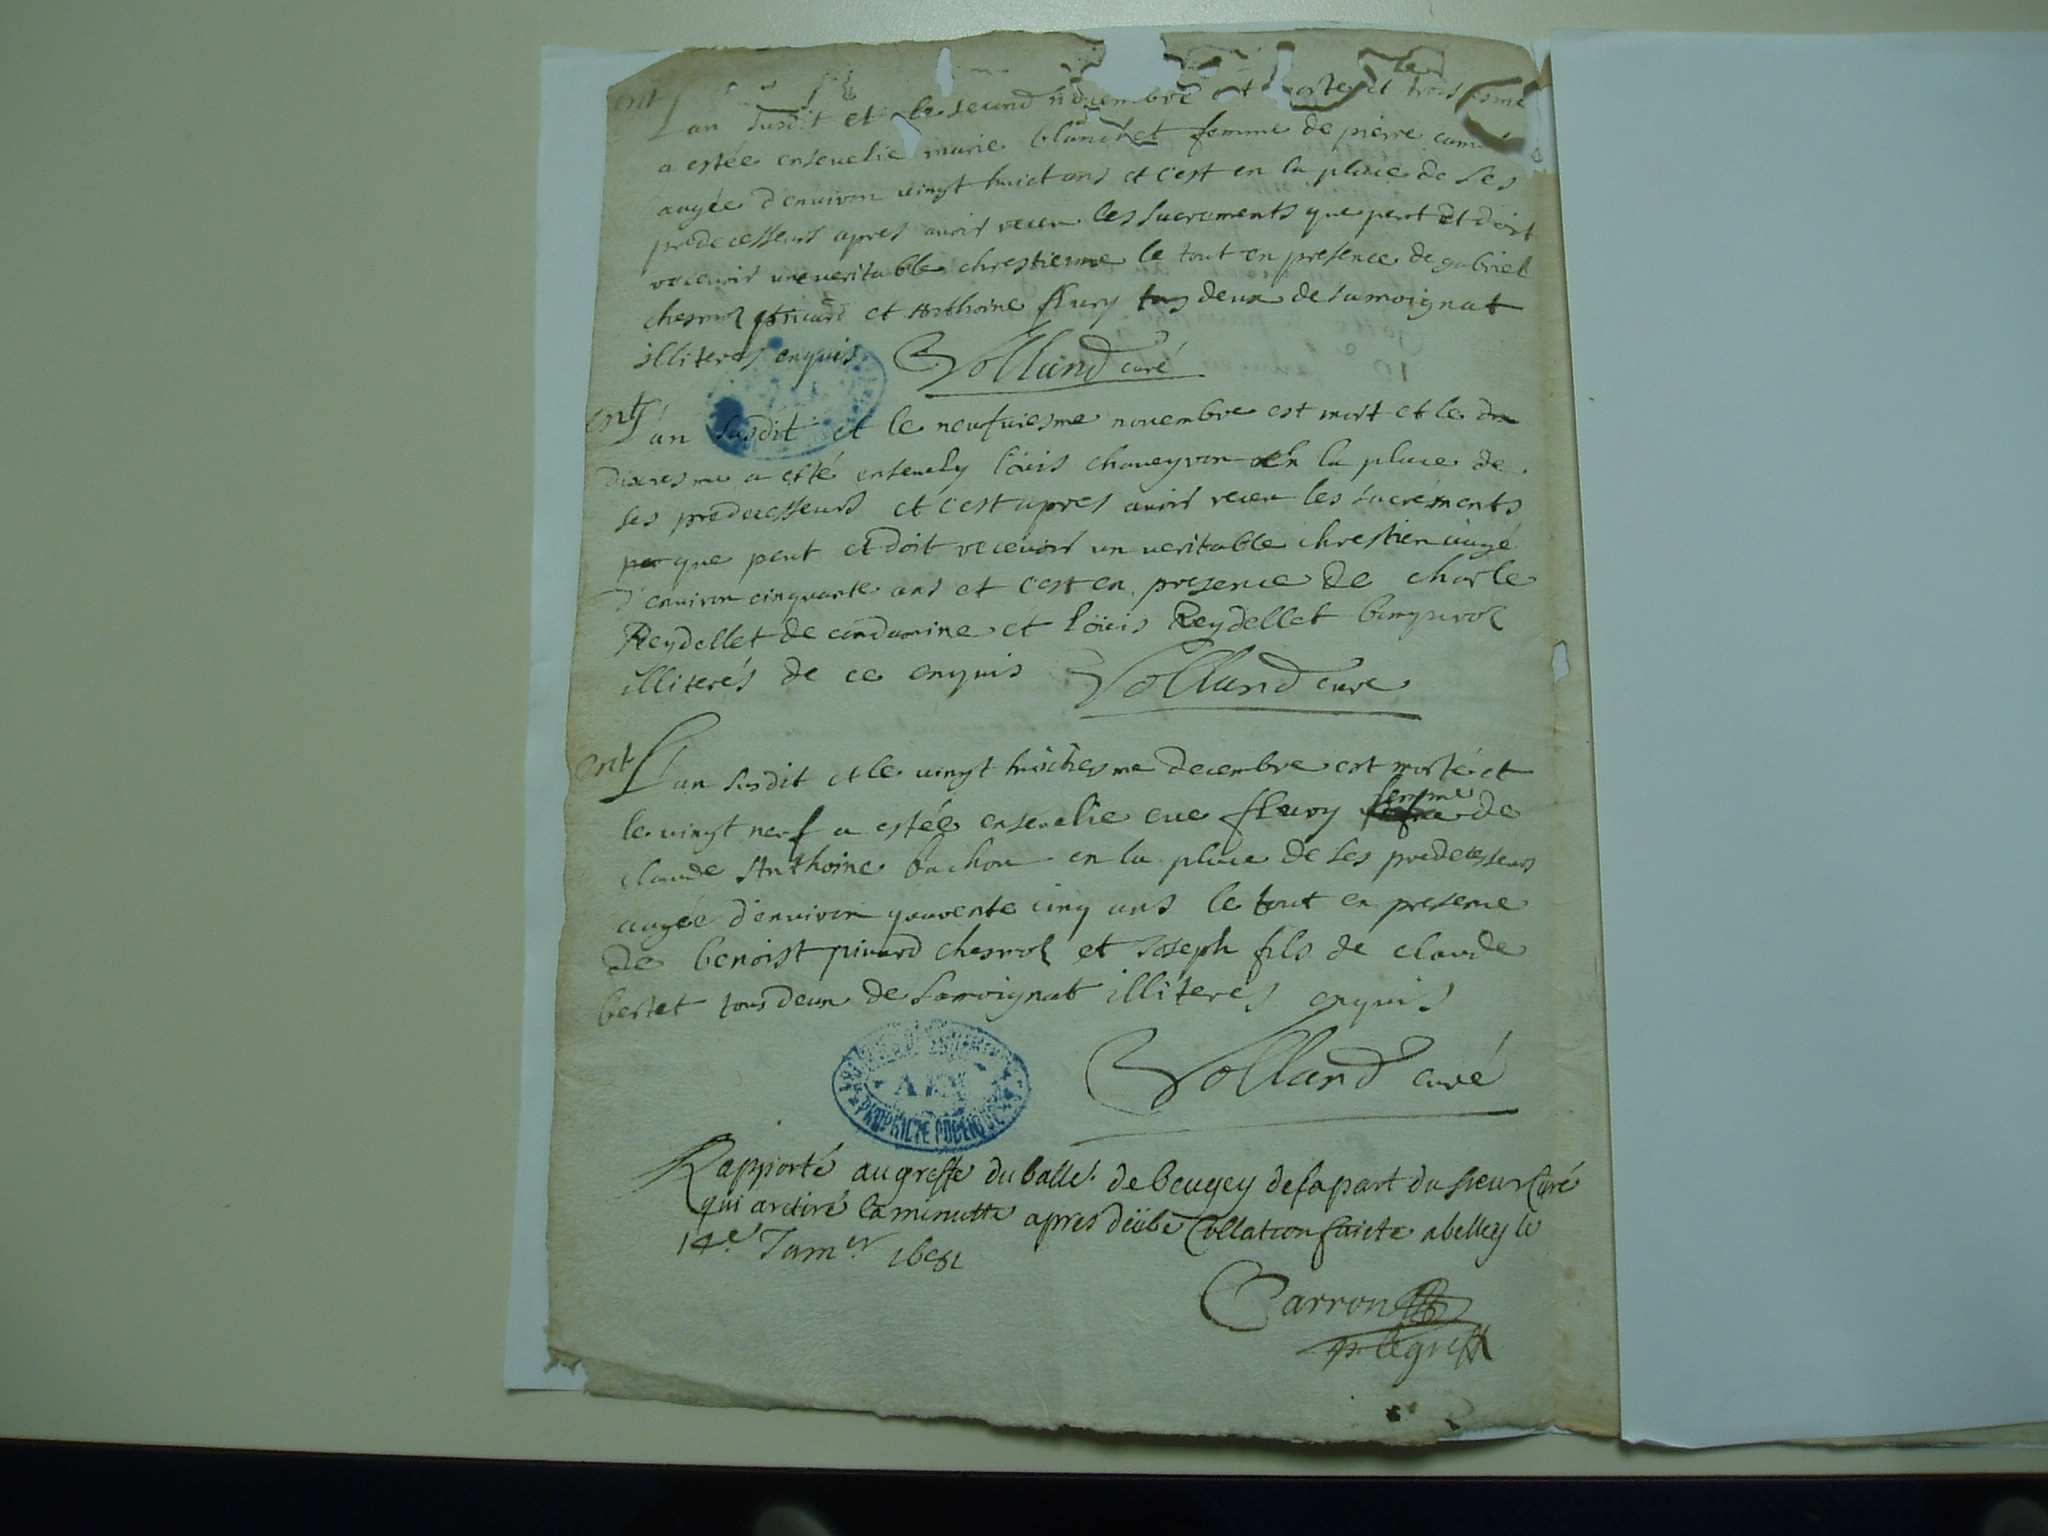 ent L'an susdit et le second novembre est morte et trois esme
a estée ensevelie marie blanchet femme de pierre
augée d'environ vingt huict ans et c'est en la place de ses
predecesseurs apres avoir receu les sacrements que peut et doit
recevoir une veritable chrestienne le tout en presence de gabriel
chesnol et Anthoine flury tous deux de samoignat
illiteres enquis Volland curé
ent L'an susdit et le neufviesme novembre est mort et le
dixiesme a esté ensevely loüis chaveyron en la place de
ses predecesseurs et c'est apres avoir receu les sacrements
que peut et doit recevoir un veritable chrestien augé
d'environ cinquante ans et c'est en presence de charle
Reydellet de condamine et loüis Reydellet
illiterés de ce enquis Volland curé
ent L'an susdit et le vingt huictiesme decembre est morte et
le vingt neuf a estée ensevelie eve fleury femme de
claude Anthoine bachou en la place de ses predecesseurs
augée d'environ quarente cinq ans le tout en presence
de benoist pinard chesnol et Joseph fils de claude
bertet tous deux de samoignat illiterés enquis
Volland curé
PROPRIETE PUBLIQUE
Rapporté au greffe du balle. de beugey de la part du sieur Curé
qui a retiré la minutte apres deübe Collation faicte a belley le
14e Janer 1681
Carron
p. le greff